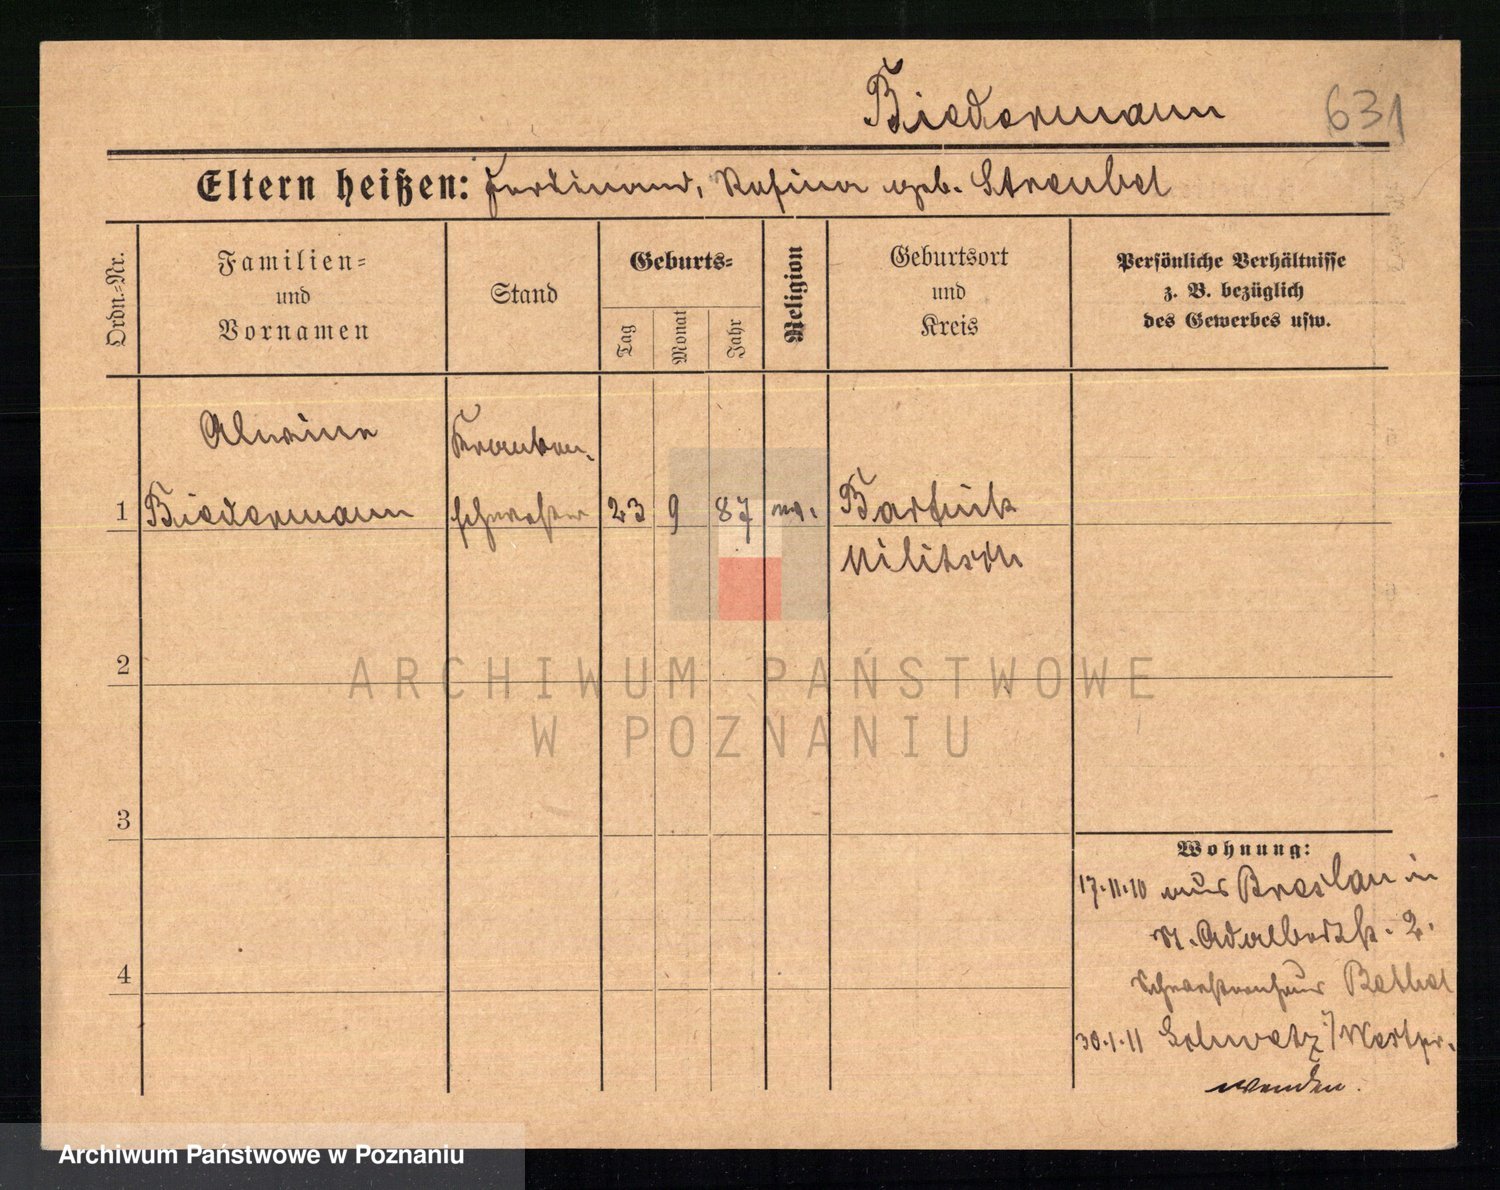 Biedermann 631
Eltern heißen: Ferdinand, Rosina geb. Streubel
Ordn.-Nr.
Familien-
und
Vornamen
Stand
Geburts-
Tag
Monat
Jahr
Religion
Geburtsort
und
Kreis
Persönliche Verhältnisse
z. B. bezüglich
des Gewerbes usw.
Alwine Kranken-
1 Biedermann schwester 23 9 87 ev. Bartnik
Militsch
2
3
4
Wohnung:
17.11.10 aus Breslau in
N. Adalbertstr. 2.
Schwesternhaus Bethel
30.1.11 Schwetz /Westpr.
wenden.
ARCHIWUM PAŃSTWOWE
W POZNANIU
Archiwum Państwowe w Poznaniu